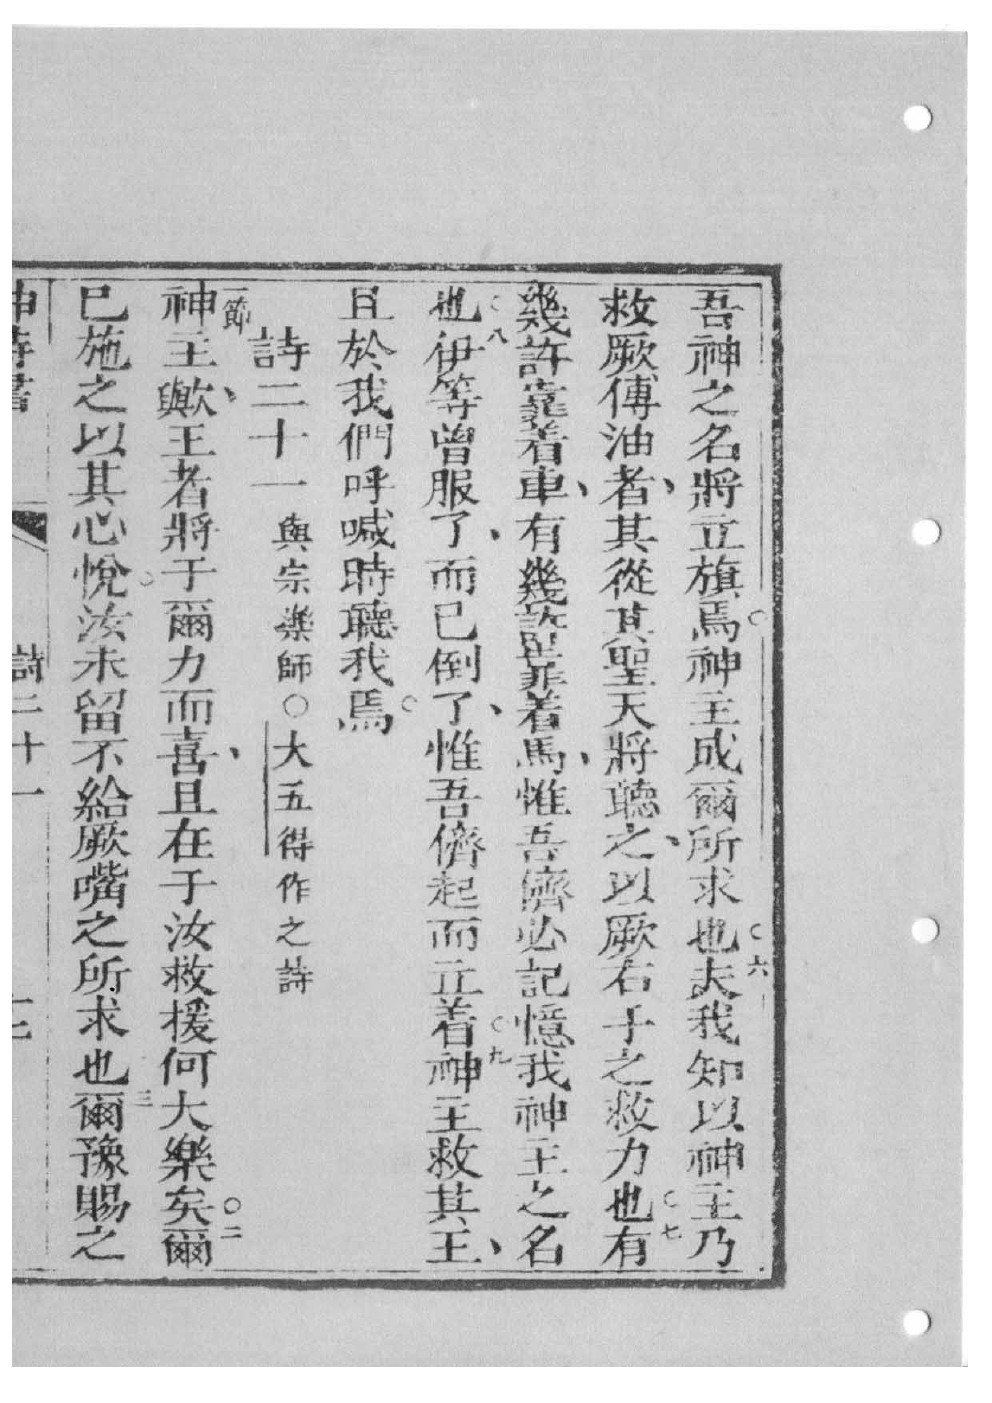 吾神之名將立旗焉○神主成爾所求也○六夫我知以神主乃
救厥傅油者、其從其聖天將聽之、以厥右手之救力也○七有
幾許靠着車、有幾許靠着馬、惟吾儕必記憶我神主之名
也○八伊等曾服了、而已倒了、惟吾儕起而立着○九神主救其王、
且於我們呼喊時聽我焉○
詩二十一 與宗樂師○大五得作之詩
一節神主歟、王者將于爾力而喜、且在于汝救援何大樂矣○二爾
已施之以其心悅○汝未留不給厥嘴之所求也三爾豫賜之
神詩書 詩二十一